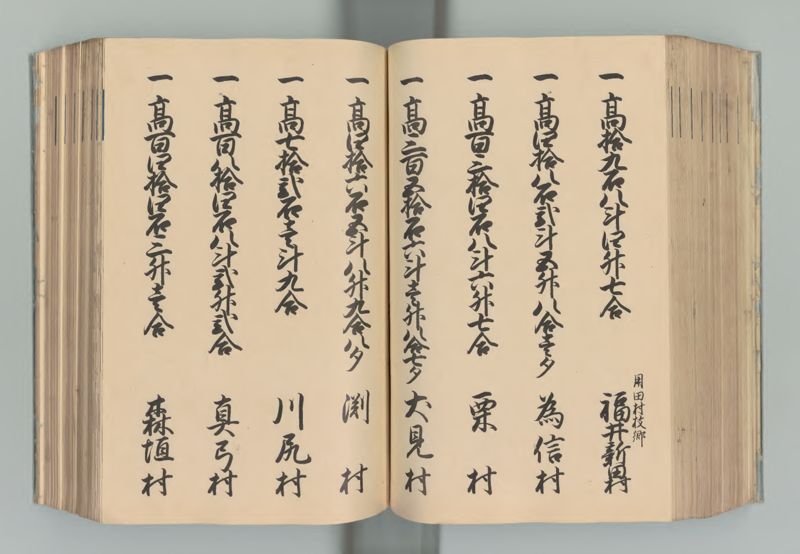 一高拾九石八斗四升七合
用田村枝郷
福井新田村
一高四拾八石弐斗五升八合壱夕
為信村
一高百三拾四石八斗六升七合
栗村
一高二百五拾石六斗壱升八合七夕
犬見村
一高四拾六石五斗八升九合八夕
渕村
一高七拾弐石壱斗九合
川尻村
一高百八拾四石八斗弐升弐合
真弓村
一高百四拾四石三升壱合
森垣村